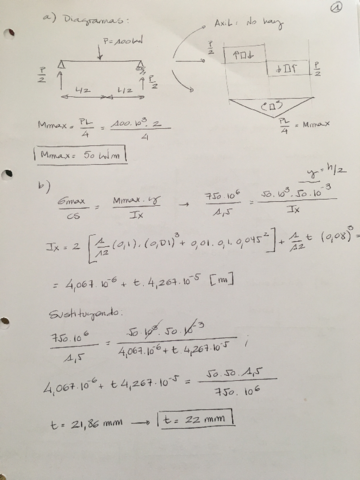 1
a) Diagramas:
P=100kN
P/2
P/2
L/2 L/2
Axil: No hay
P/2
P/2
PL/4 = Mmax
Mmax = PL/4 = 100.10³.2/4
Mmax = 50 kN.m
b)
y = h/2
σmax/CS = Mmax.y/Ix → 750.10⁶/1,5 = 50.10³.50.10⁻³/Ix
Ix = 2 [1/12 (0,1).(0,01)³ + 0,01.0,1.0,045²] + 1/12 t (0,08)³ =
= 4,067.10⁻⁶ + t.4,267.10⁻⁵ [m]
Sustituyendo.
750.10⁶/1,5 = 50.10³.50.10⁻³/4,067.10⁻⁶ + t 4,267.10⁻⁵ ;
4,067.10⁻⁶ + t 4,267.10⁻⁵ = 50.50.1,5/750.10⁶
t = 21,86 mm → t = 22 mm